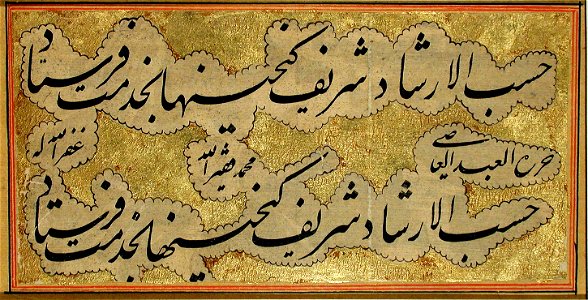 حسب الارشاد شریف کنجینها بخدمت فرستاد
حرره العبد العاصی محمد فقیر الله غفر الله له
حسب الارشاد شریف کنجینها بخدمت فرستاد